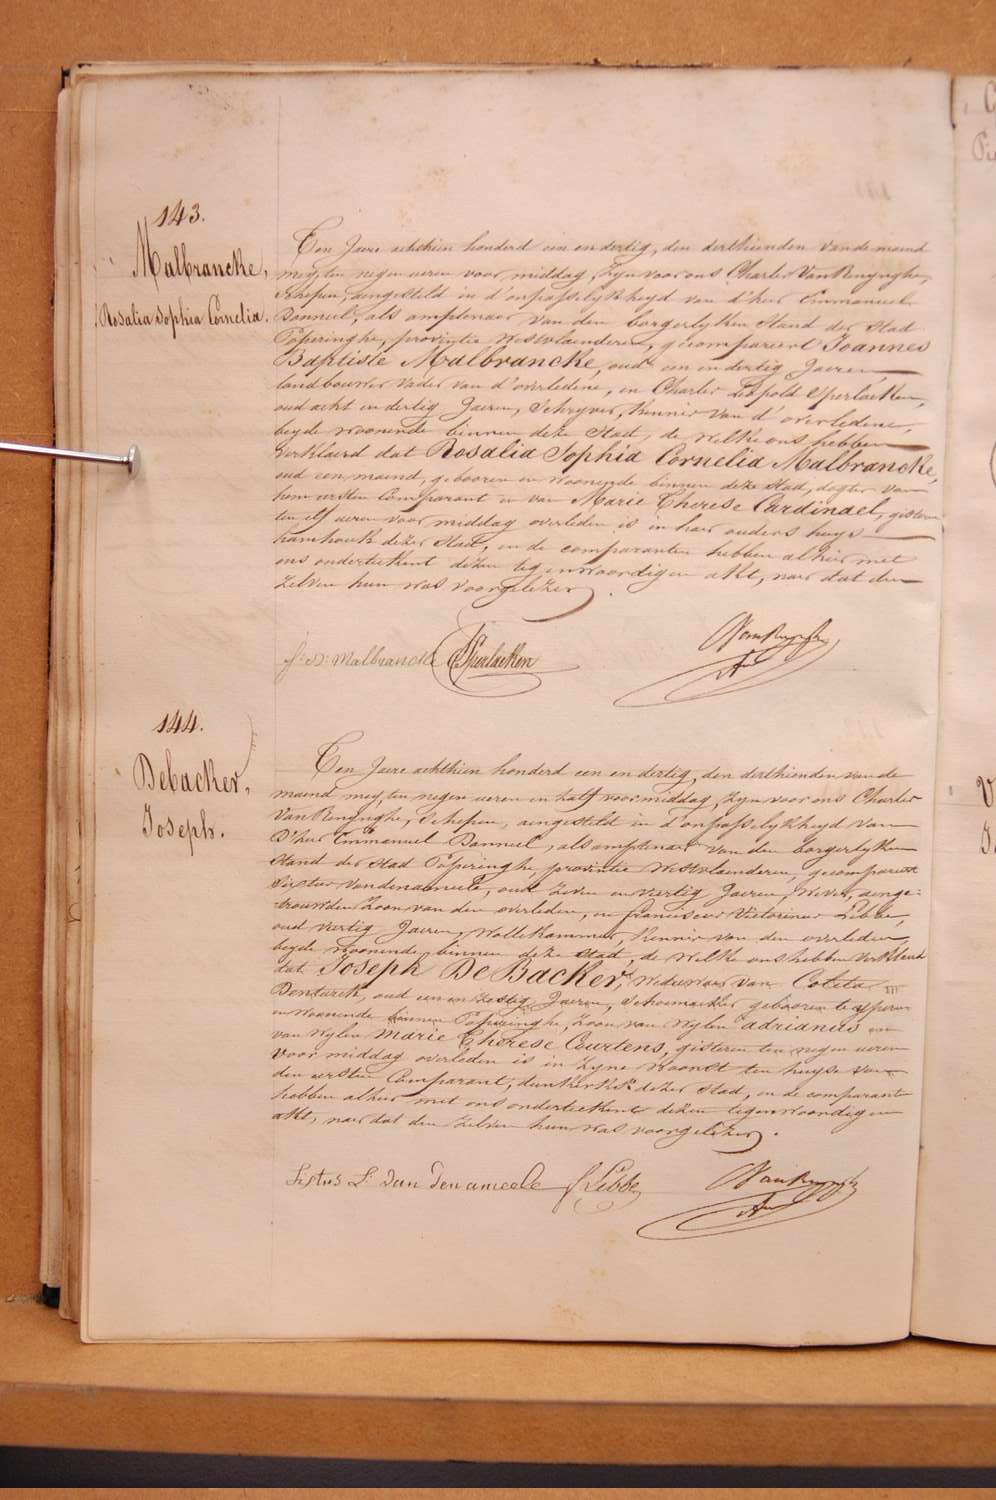 143.
Malbrancke,
Rosalia Sophia Cornelia.
Ten Jaere achthien honderd een en dertig, den derthienden van de maend
mey, ten negen ueren voor middag, Zyn voor ons Charles Van Renynghe,
Schepen, aengesteld in d'onpasselykheyd van d'heer Emmanuel
Danneel, als amptenaer van den borgerlyken Stand der Stad
Poperinghe, provintie Westvlaenderen, gecompareert Joannes
Baptiste Malbrancke, oud een en dertig Jaeren,
landbouwer vader van d'overledene, en Charles Leopold Sperlaeken,
oud acht en dertig Jaeren, Schryver, Kennis van d'overledene,
beyde woonende binnen deze Stad, de welke ons hebben
verklaerd dat Rosalia Sophia Cornelia Malbrancke,
oud een maend, gebooren en woonende binnen deze Stad, dogter van
hem eersten Comparant en van Marie Therese Cardinael, gisteren
ten elf ueren voor middag overleden is in haer ouders huys
hamhoek dezer Stad, en de comparanten hebben alhier met
ons onderteekent dezen tegenwoordigen akt, naer dat den
Zelven hun was voorgelezen.
Malbrancke Sperlaeken VanRenynghe
144.
Debacker,
Joseph.
Ten Jaere achthien honderd een en dertig, den derthienden van de
maend mey, ten negen ueren en half voormiddag, Zyn voor ons Charles
Van Renynghe, Schepen, aengesteld in d'onpasselykheyd van
D'heer Emmanuel Danneel, als amptenaer van den borgerlyken
Stand der Stad Poperinghe, provintie Westvlaenderen, gecompareert
Sixtus Vandenameele, oud Zeven en Viertig Jaeren, Wever, aenge-
trouwden Zoon van den overleden, en franciscus Victorinus Lebbe,
oud viertig Jaeren, Wollekammer, Kennis van den overleden,
beyde woonende binnen deze Stad, de welke ons hebben verklaert
dat Joseph De Backer, weduwaer van Coleta
Denturck, oud een en Zestig Jaeren, Schoemaeker gebooren te yperen
en woonende binnen Poperinghe, Zoon van wylen adrianus en
van wylen Marie Therese Courtens, gisteren ten negen ueren
Voor middag overleden is in Zyne Woonst ten huyse van
den eersten Comparant, dezer Stad, en de comparanten
hebben alhier met ons onderteekent dezen tegenwoordigen
akt, naer dat den Zelven hun was voorgelezen.
Sixtus L. Van den ameele f Lebbe VanRenynghe